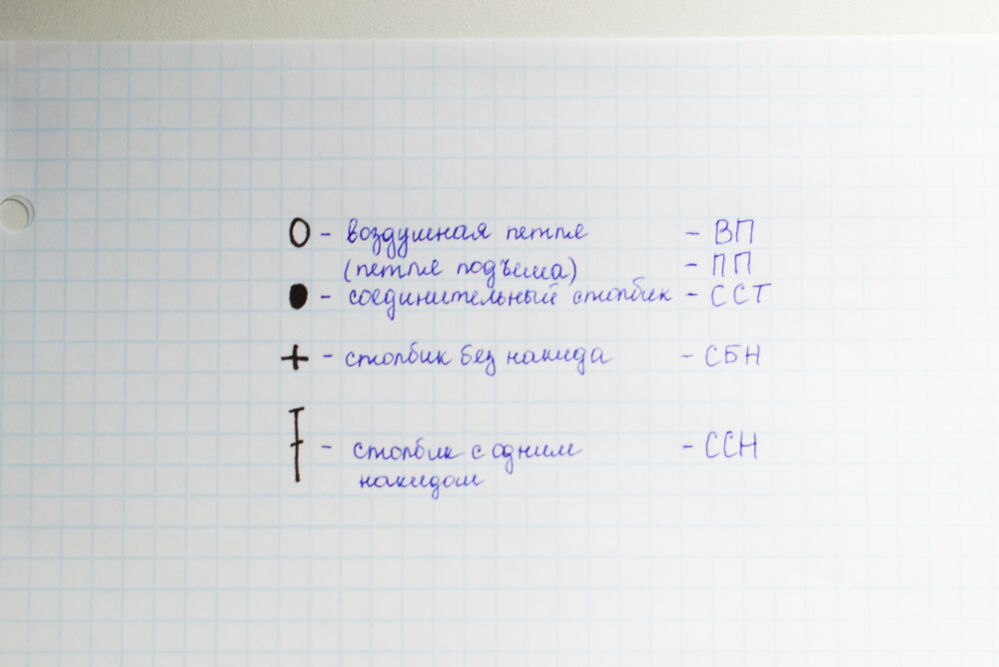 O - воздушная петля - ВП
(петля подъёма) - ПП
● - соединительный столбик - ССТ
+ - столбик без накида - СБН
- столбик с одним - ССН
накидом